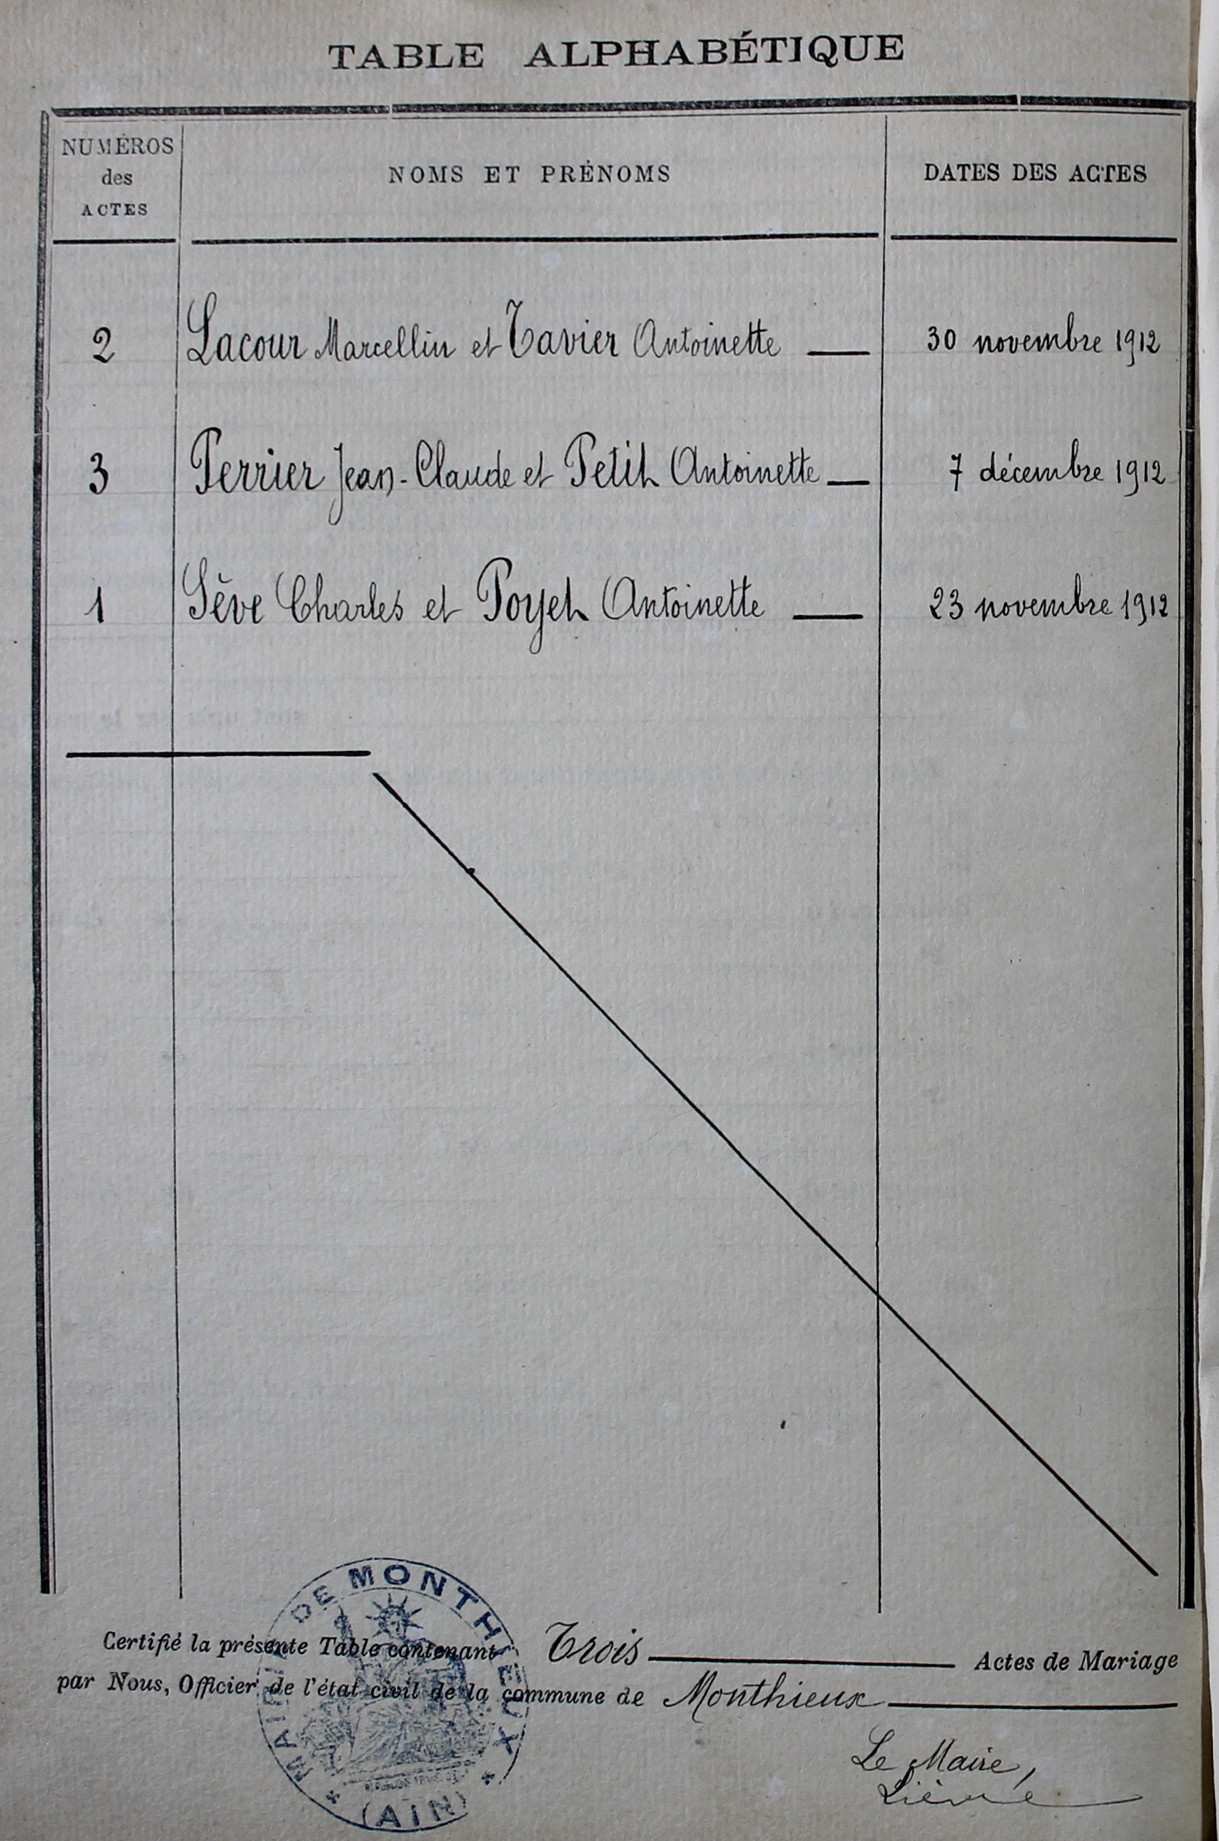 TABLE ALPHABÉTIQUE
NUMÉROS
des
ACTES
NOMS ET PRÉNOMS
DATES DES ACTES
2 Lacour Marcellin et Tavier Antoinette 30 novembre 1912
3 Perrier Jean-Claude et Petit Antoinette 7 décembre 1912
1 Sève Charles et Poyet Antoinette 23 novembre 1912
Certifié la présente Table contenant Trois Actes de Mariage
par Nous, Officier de l'état civil de la commune de Monthieux
MAIRIE DE MONTHIEUX
(AIN)
Le Maire,